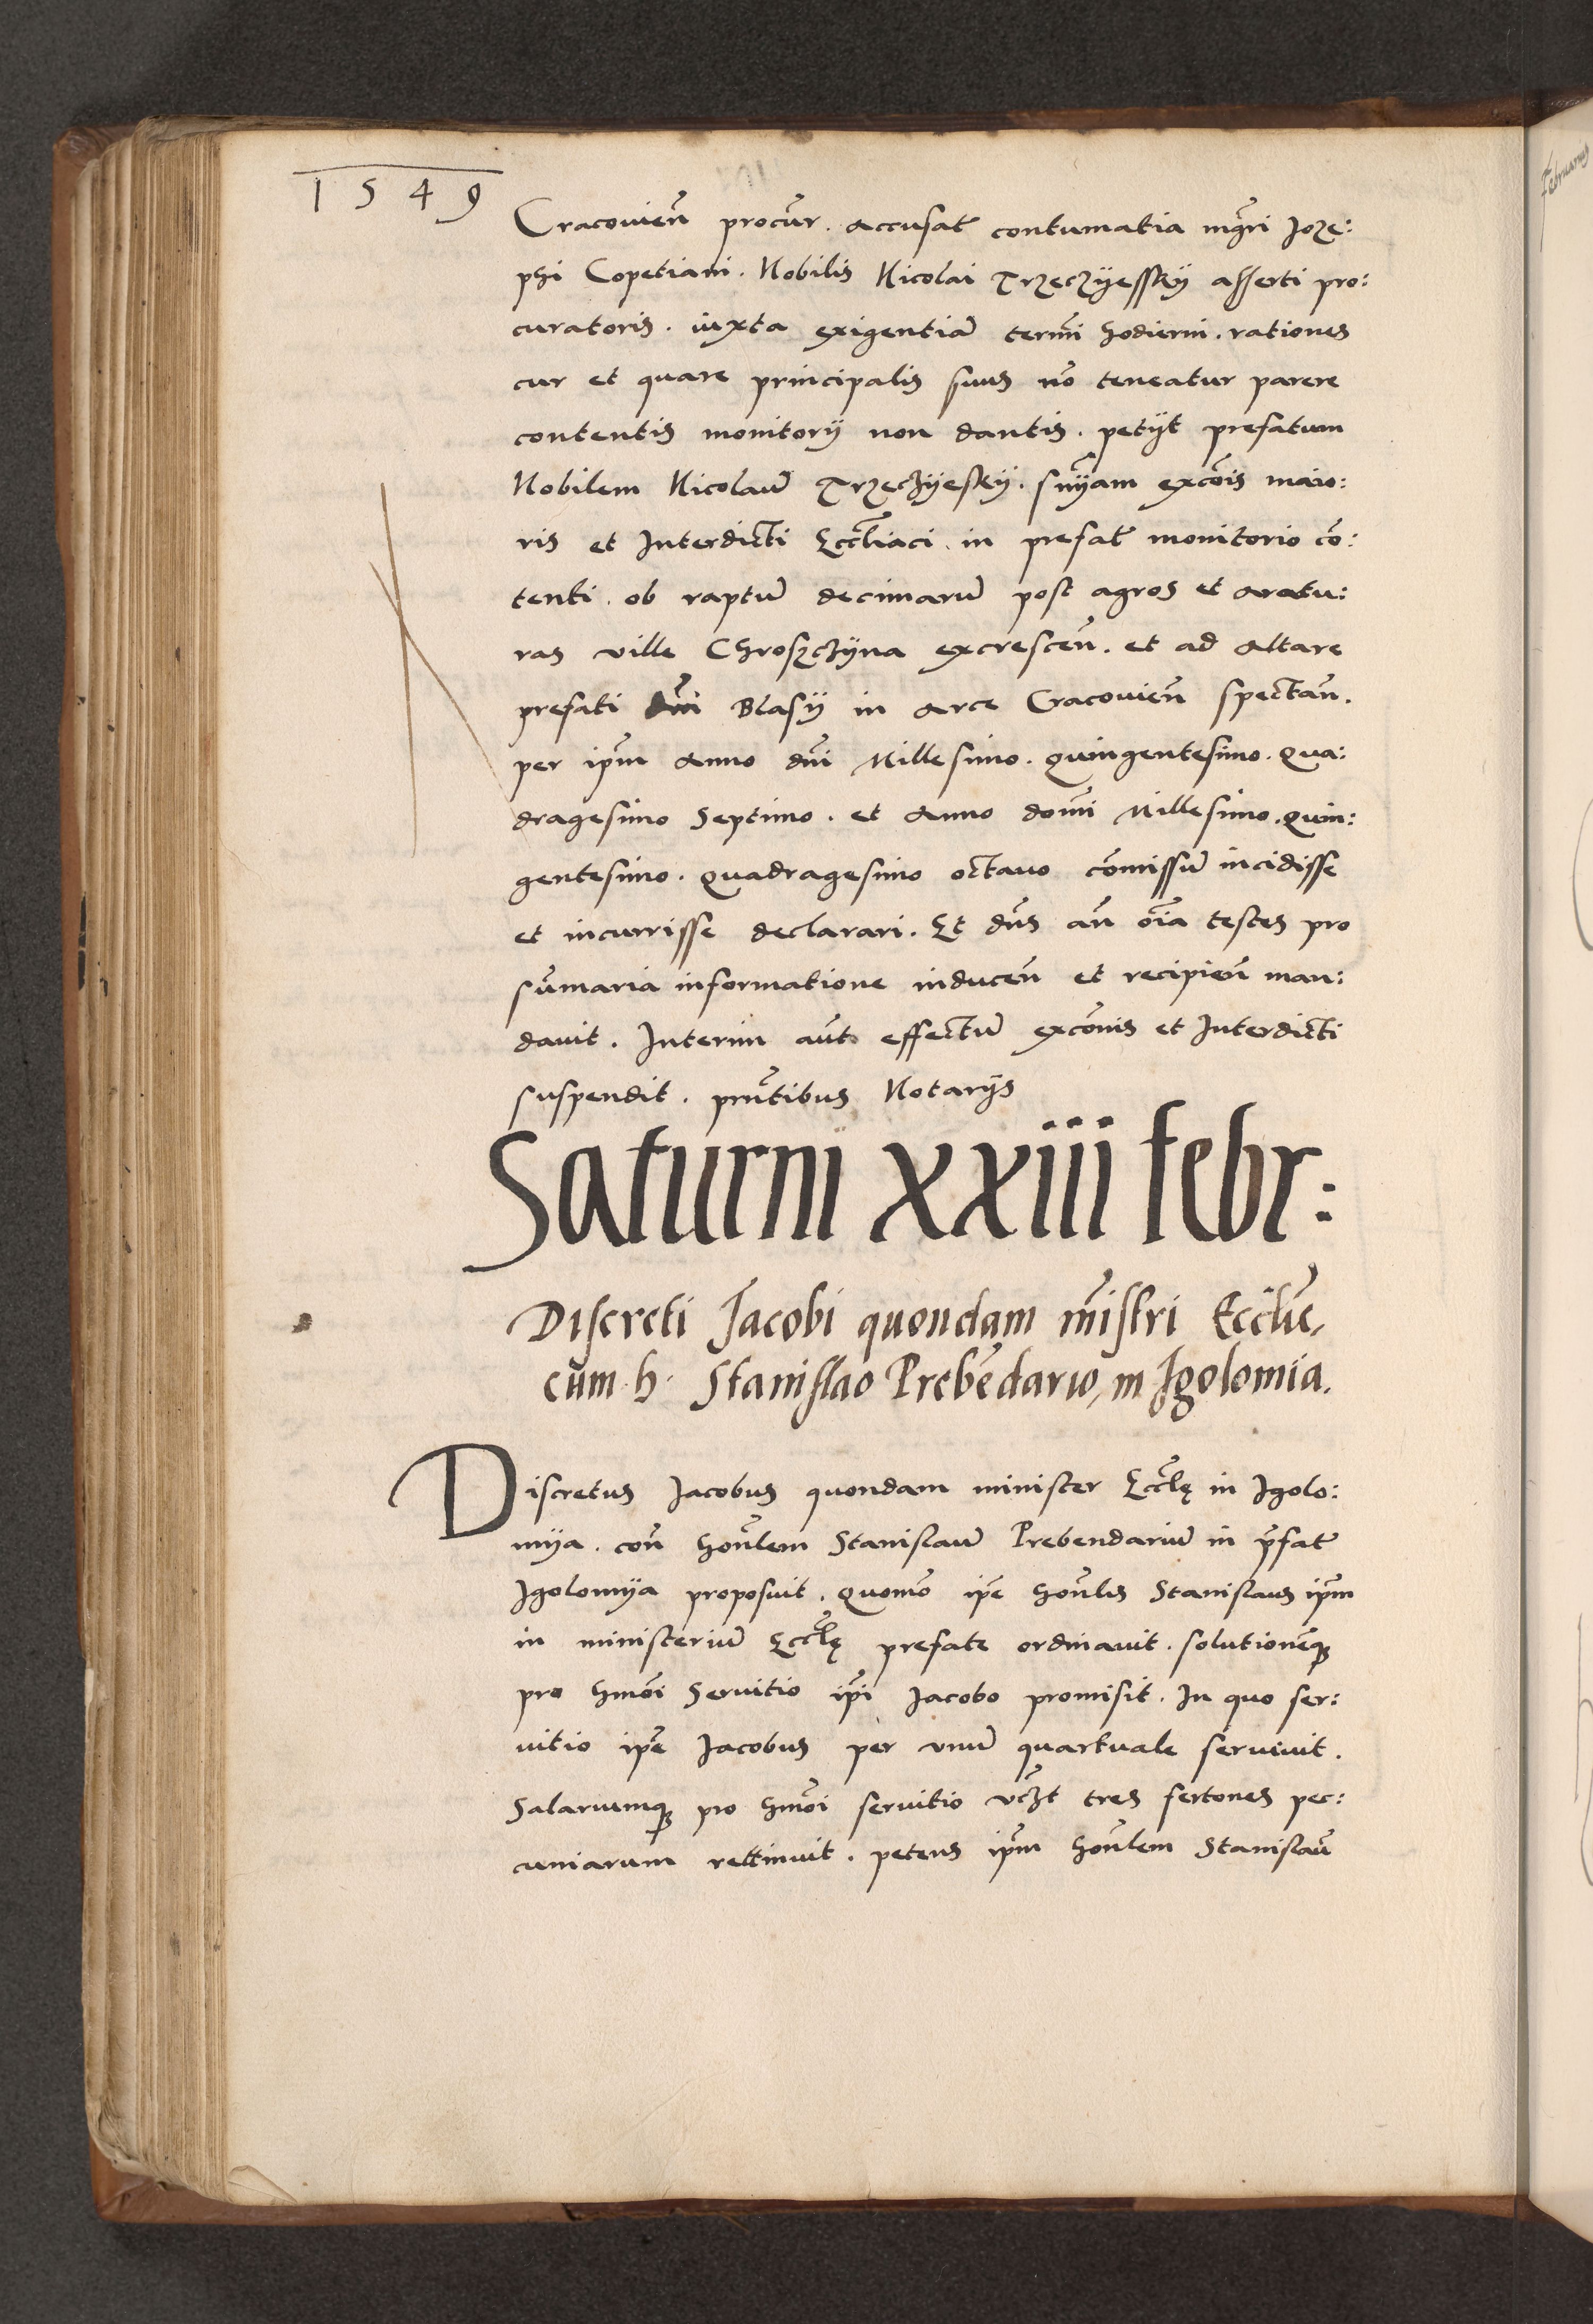 1549
Cracovień procur̃. accusat̃ contumatia mgr̃i Joze:
phi Copetiani. Nobilis Nicolai Trzeczÿesskÿ asserti pro:
curatoris. iuxta exigentiã term̃i hodierni. rationes
cur et quare principalis suus nõ teneatur parere
contentis monitorÿ non dantis. petÿt prefatum
Nobilem Nicolaũ Trzeczÿeskÿ. sñÿam excõis maio:
ris et Interdicti Eccl̃iaci in prefat̃ monitorio cõ:
tenti. ob raptũ decimarũ post agros et aratu:
ras ville Chroszczÿna excrescen̄. et ad altare
prefati dñi Blasÿ in arce Cracovień spectan̄.
per ip̃m Anno dñi Millesimo. quingentesimo. qua:
dragesimo Septimo. et Anno domĩ Millesimo. quin:
gentesimo. quadragesimo octavo cõmissũ incidisse
et incurrisse declarari. Et dñs añ õia testes pro
sũmaria informatione inducen̄ et recipien̄ man:
davit. Interim aũt effectũ excõnis et Interdicti
suspendit. pñtibus Notarÿs
Saturni xxiii febr:
Discreti Jacobi quondam mĩstri Eccl̃ie,
cum h. Stanislao Prebẽdario, in Igolomia.
Discretus Jacobus quondam minister Eccl̃ę in Igolo:
mÿa. con̄ hoñlem Stanislaũ Prebendariũ in p̃fat̃
Igolomÿa proposuit. quomõ ip̃e hoñlis Stanislaus ip̃m
in ministeriũ Eccl̃ę prefate ordinavit. solutionẽqꝫ
pro hmõi Servitio ip̃i Jacobo promisit. In quo ser:
vitio ip̃e Jacobus per unũ quartuale servivit.
Salariumqꝫ pro hmõi servitio vcz̃t tres fertones pec:
cuniarum rettinuit. petens ip̃m hoñlem Stanislaũ
Februarius